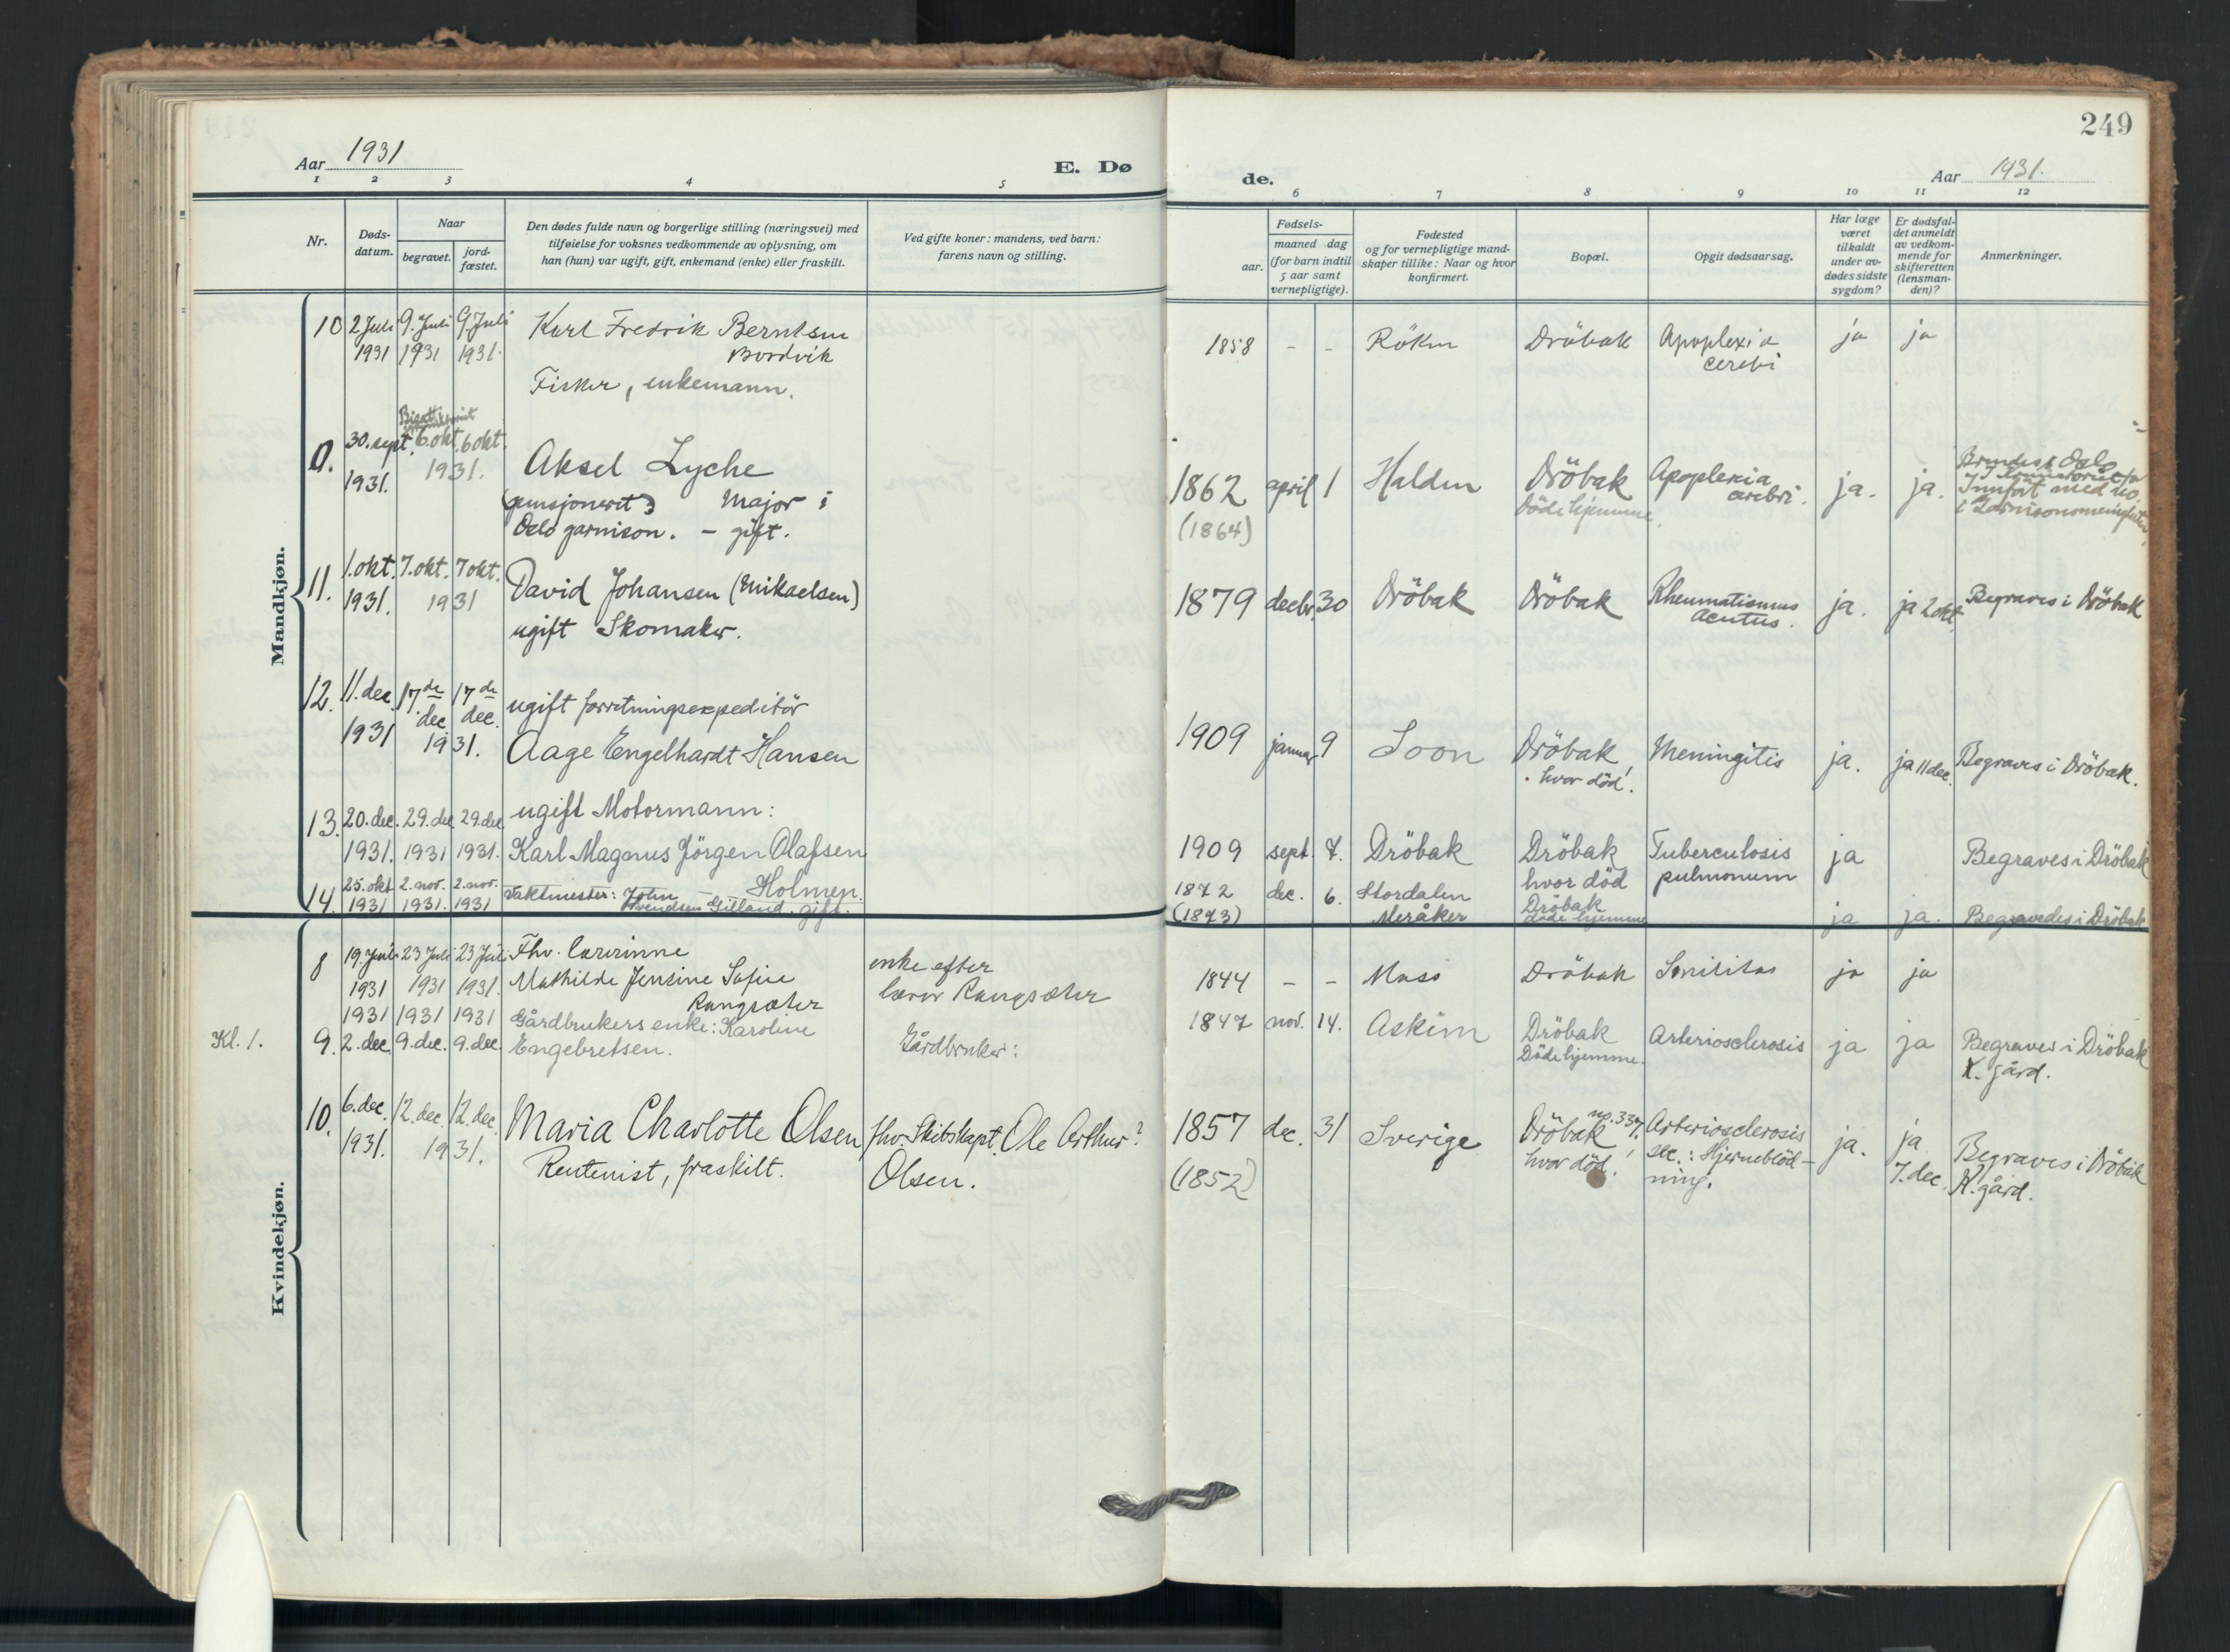 249
Aar 1931
E. Dø
de.
Aar 1931.
1 2 3 4 5
6 7 8 9 10 11 12
Nr.
Døds-
datum.
Naar
begravet.
jord-
fæstet.
Den dødes fulde navn og borgerlige stilling (næringsvei) med
tilføielse for voksnes vedkommende av oplysning, om
han (hun) var ugift, gift, enkemand (enke) eller fraskilt.
Ved gifte koner: mandens, ved barn:
farens navn og stilling.
Fødsels-
aar.
maaned dag
(for barn indtil
5 aar samt
vernepligtige).
Fødested
og for vernepligtige mand-
skaper tillike: Naar og hvor
konfirmert.
Bopæl.
Opgit dødsaarsag.
Har læge
været
tilkaldt
under av-
dødes sidste
sygdom?
Er dødsfal-
det anmeldt
av vedkom-
mende for
skifteretten
(lensman-
den)?
Anmerkninger.
Mandkjøn.
10 2 Juli 9. Juli 9 Juli Karl Fredrik Berntsen
1931 1931 1931. Bordvik
Fisker, enkemann.
1858 - - Röken Dröbak Apoplexia ja ja
cerebri
0. 30. sept. 6. okt. 6 okt. Aksel Lyche
1931. 1931.
(pensjonert) Major i
Oslo garnison. - gift.
1862 april 1 Halden Dröbak Apoplexia ja. ja.
(1864) Död i hjemme. cerebri.
Innført med no.
11. 1. okt. 7. okt. 7 okt. David Johansen (Mikaelsen)
1931. 1931
ugift Skomaker.
1879 decbr. 30 Dröbak Dröbak Rheumatismus ja. ja 2 okt. Begraves i Dröbak
acutus.
12. 11. dec. 17de 17de ugift forretningsexpeditör
dec. dec.
1931 1931. Aage Engelhardt Hansen
1909 januar 9 Soon Dröbak Meningitis ja. ja 11 dec. Begraves i Dröbak.
hvor död!
13. 20. dec. 29. dec 29. dec ugift Motormann:
1931. 1931 1931. Karl Magnus Jörgen Olafsen
Holmen.
1909 sept. 7. Dröbak Dröbak Tuberculosis ja Begraves i Dröbak
hvor död pulmonum
14. 25. okt 2. nov. 2. nov. Vaktmester: John
1931 1931. 1931 Svendsen Gilland. gift.
1872 dec. 6. Stordalen Dröbak
(1873) Meråker döde hjemme ja ja. Begravedes i Dröbak
Kvindekjøn.
8 19. Juli 23 Juli 23 Juli Fhv. lærerinne enke efter
1931 1931 1931. Mathilde Jensine Sofie lærer Rangsæter
Rangsæter
1844 - - Moss Dröbak Senilitas ja ja
1931 1931 1931 Gårdbrukers enke: Karoline
Kl. 1. 9. 2. dec. 9. dec. 9. dec. Engebretsen. Gårdbruker:
1847 nov. 14. Askim Dröbak Arteriosclerosis ja ja Begraves i Dröbak
Död i hjemme. K. gård.
10. 6. dec. 12. dec. 12. dec. Maria Charlotte Olsen fhv. Skibskapt. Ole Arthur?
1931. 1931. Rentenist, fraskilt. Olsen.
1857 dec. 31 Sverige Dröbak no. 337. Arteriosclerosis ja. ja
(1852) hvor död! sec.: Hjerneblöd-
ning. 7. dec. Begraves i Dröbak
K. gård.